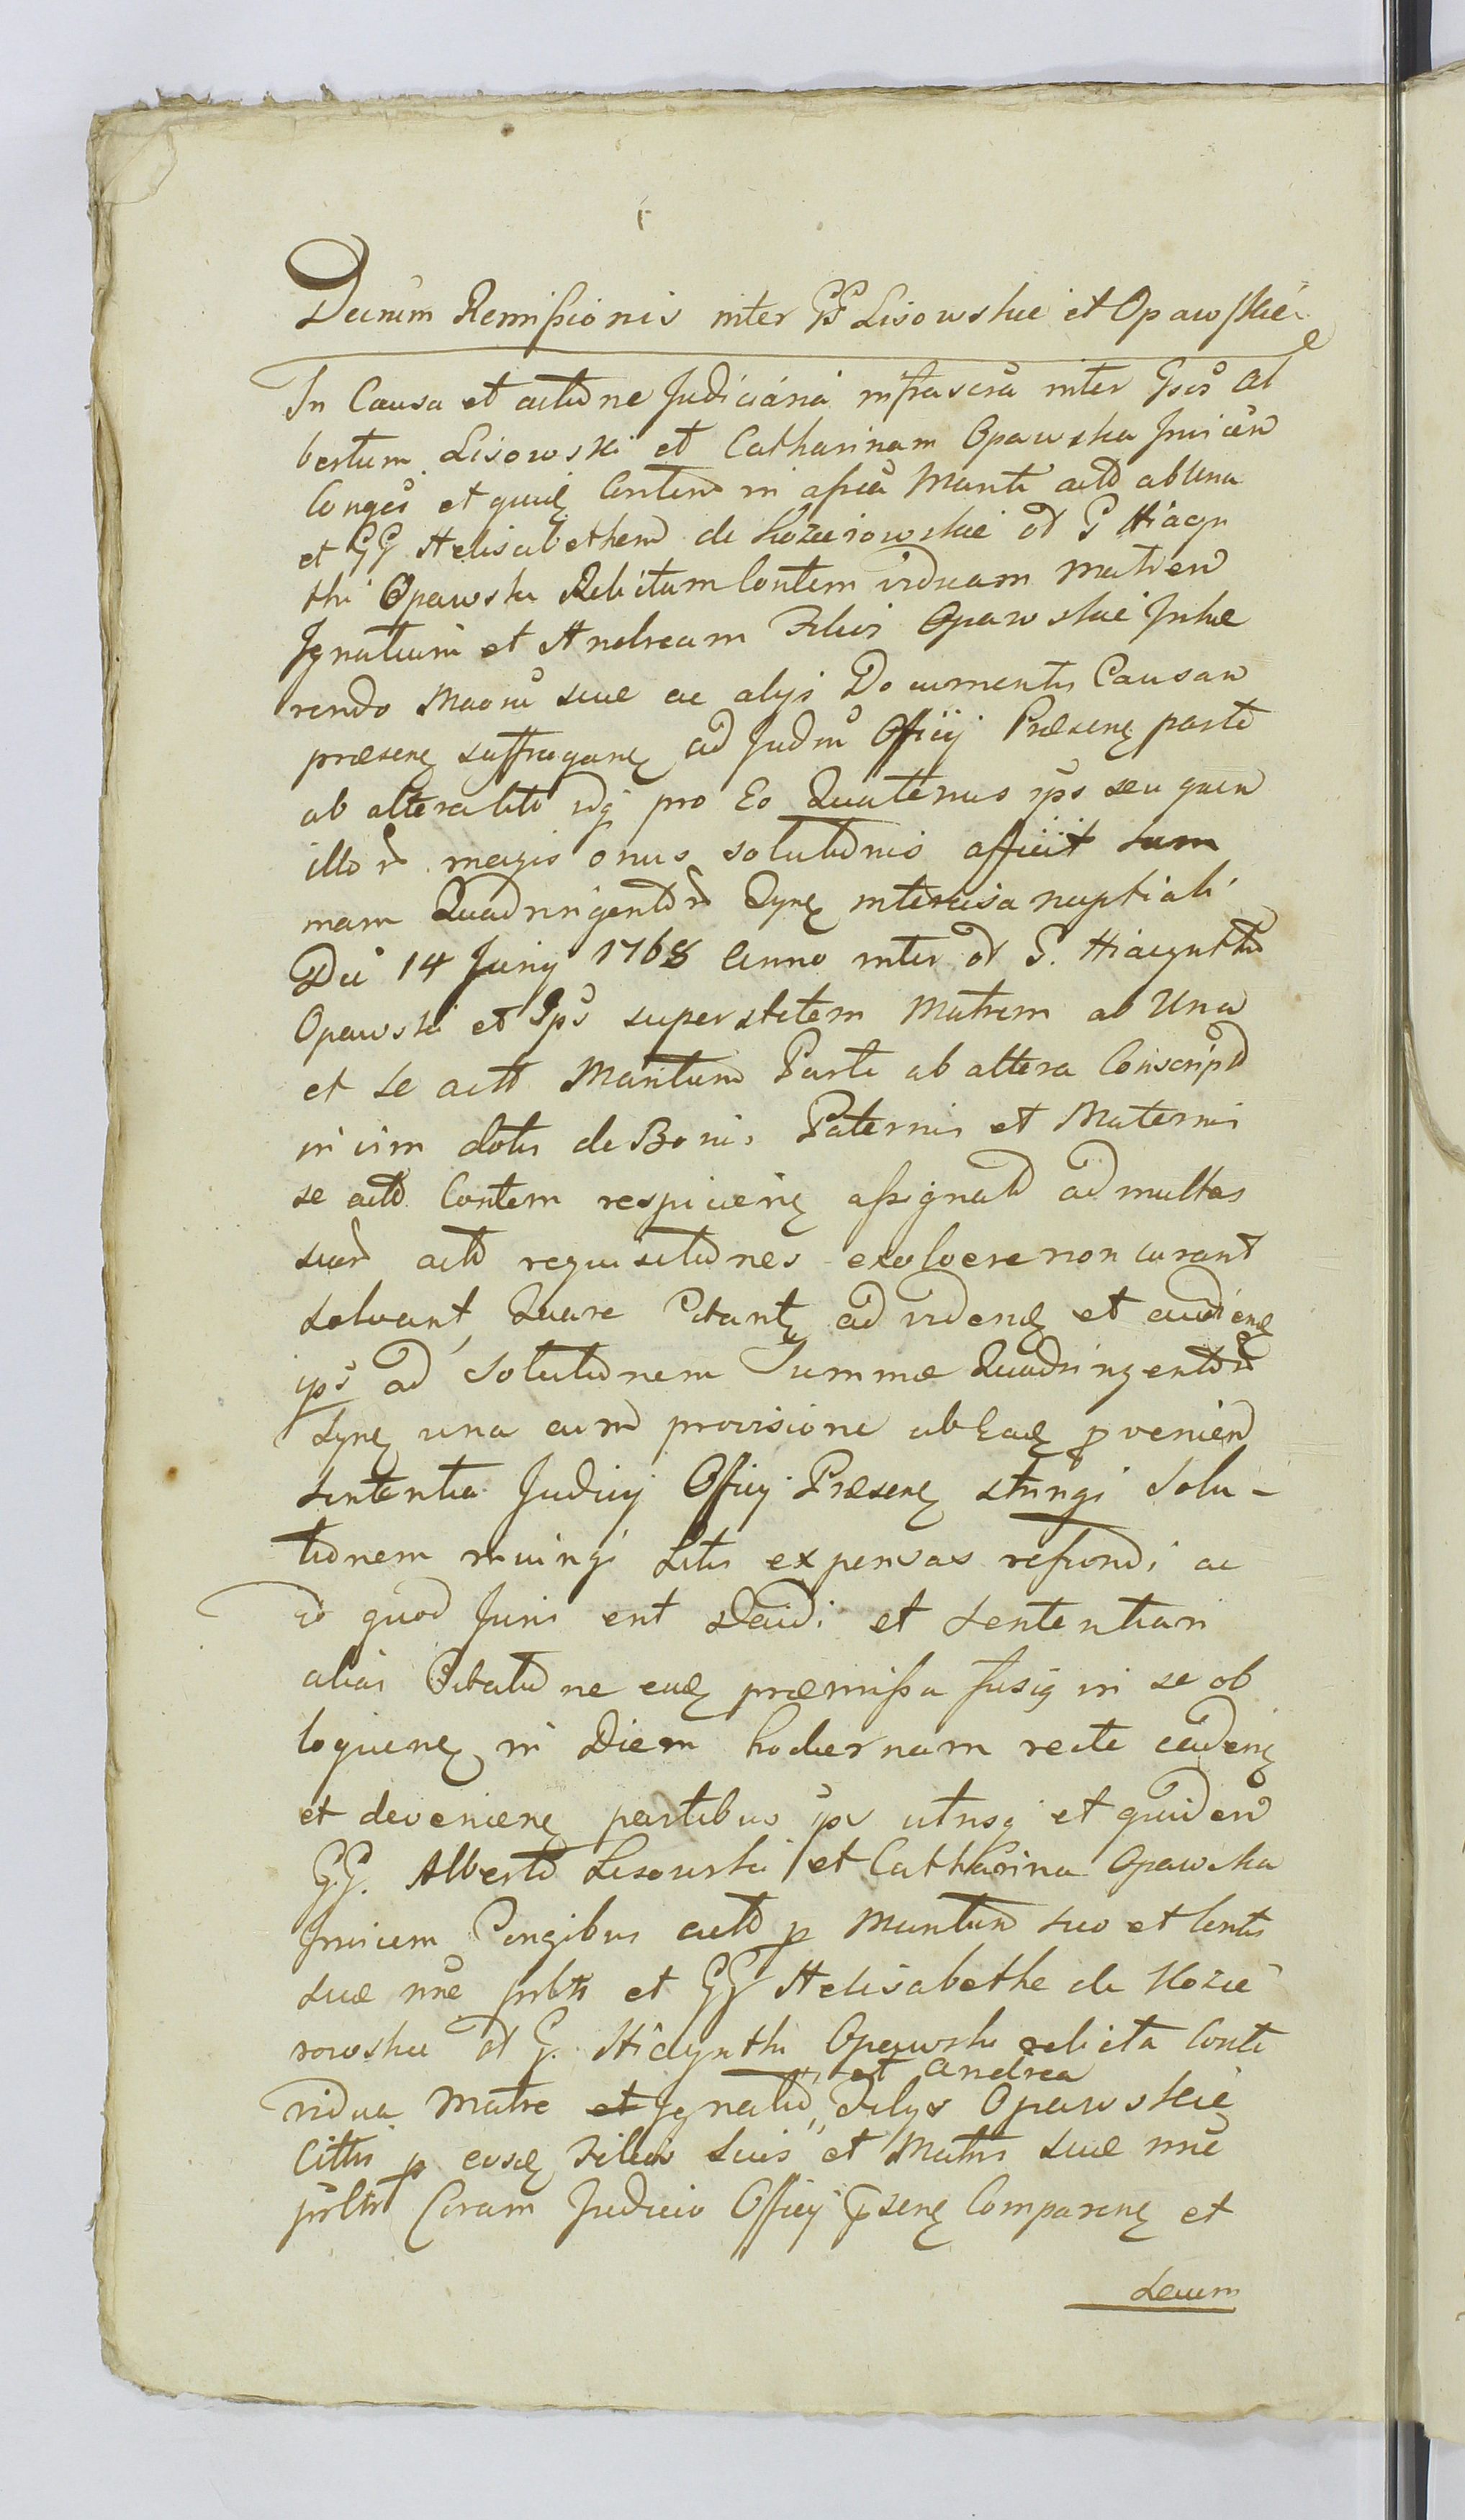 Decrum Remissionis inter GG Lisowskie et Opawskie
In Causa et actione Judiciaria infrascra inter Gsos Al
bertum Lisowski et Catharinam Opawska Invicem
Conges et quidq Conten in assia Mariti acto ab Una
et GG Helisabetham de Kozierowskie od G Hiacyn
thi Opawski Relictam Contem viduam Matrem
Ignatium et Andream Filios Opawskie Inhæ
rendo suæ ac alys Documentis Causam
præsenq suffraganq ad Judm Officij Præsenq parte
ab altera idq pro Eo Quatenus ips seu quem
illor magis onus solutionis afficit sum
mam Quadringentor intercisa nuptiali
Die 14 Juny 1768 Anno inter od G. Hiacynth
Opawski et Ips superstitem Matrem ab Una
et se acto Maritum Parte ab altera Conscript
in vim dotis de Bonis Paternis et Maternis
se acto Contem respicienq assignat ad multas
suar acto requisitiones exolvere non curant
solvant, Quare Citantq ad videndq et audiendq
ips ad Solutionem Summæ Quadringentor
una cum provisione ab Eadq pvenien
sententia Judicij Officij Præsenq stringi Solu-
tionem iniungi Litis expensas refundi ac
id quod Juris erit Decidi et sententiari
alias Citatione eadq præmissa fusiq in se ob
loquenq in Diem hodiernam recte cadenq
et devenienq partibus ips utrisq et quidem
GG. Alberto Lisowski et Catharina Opawska
Invicem Congibus acto p Maritum suo et Contis
suæ nne et GG Helisabethe de Kozie
rowskie od G. Hiacynthi Opawski relicta Conte
vidua Matre et Ignatio, et Andrea Filys Opawskie
Cittis p eosdq Filios suis et Matris suæ nne
Coram Judicio Officij Psenq Comparenq et